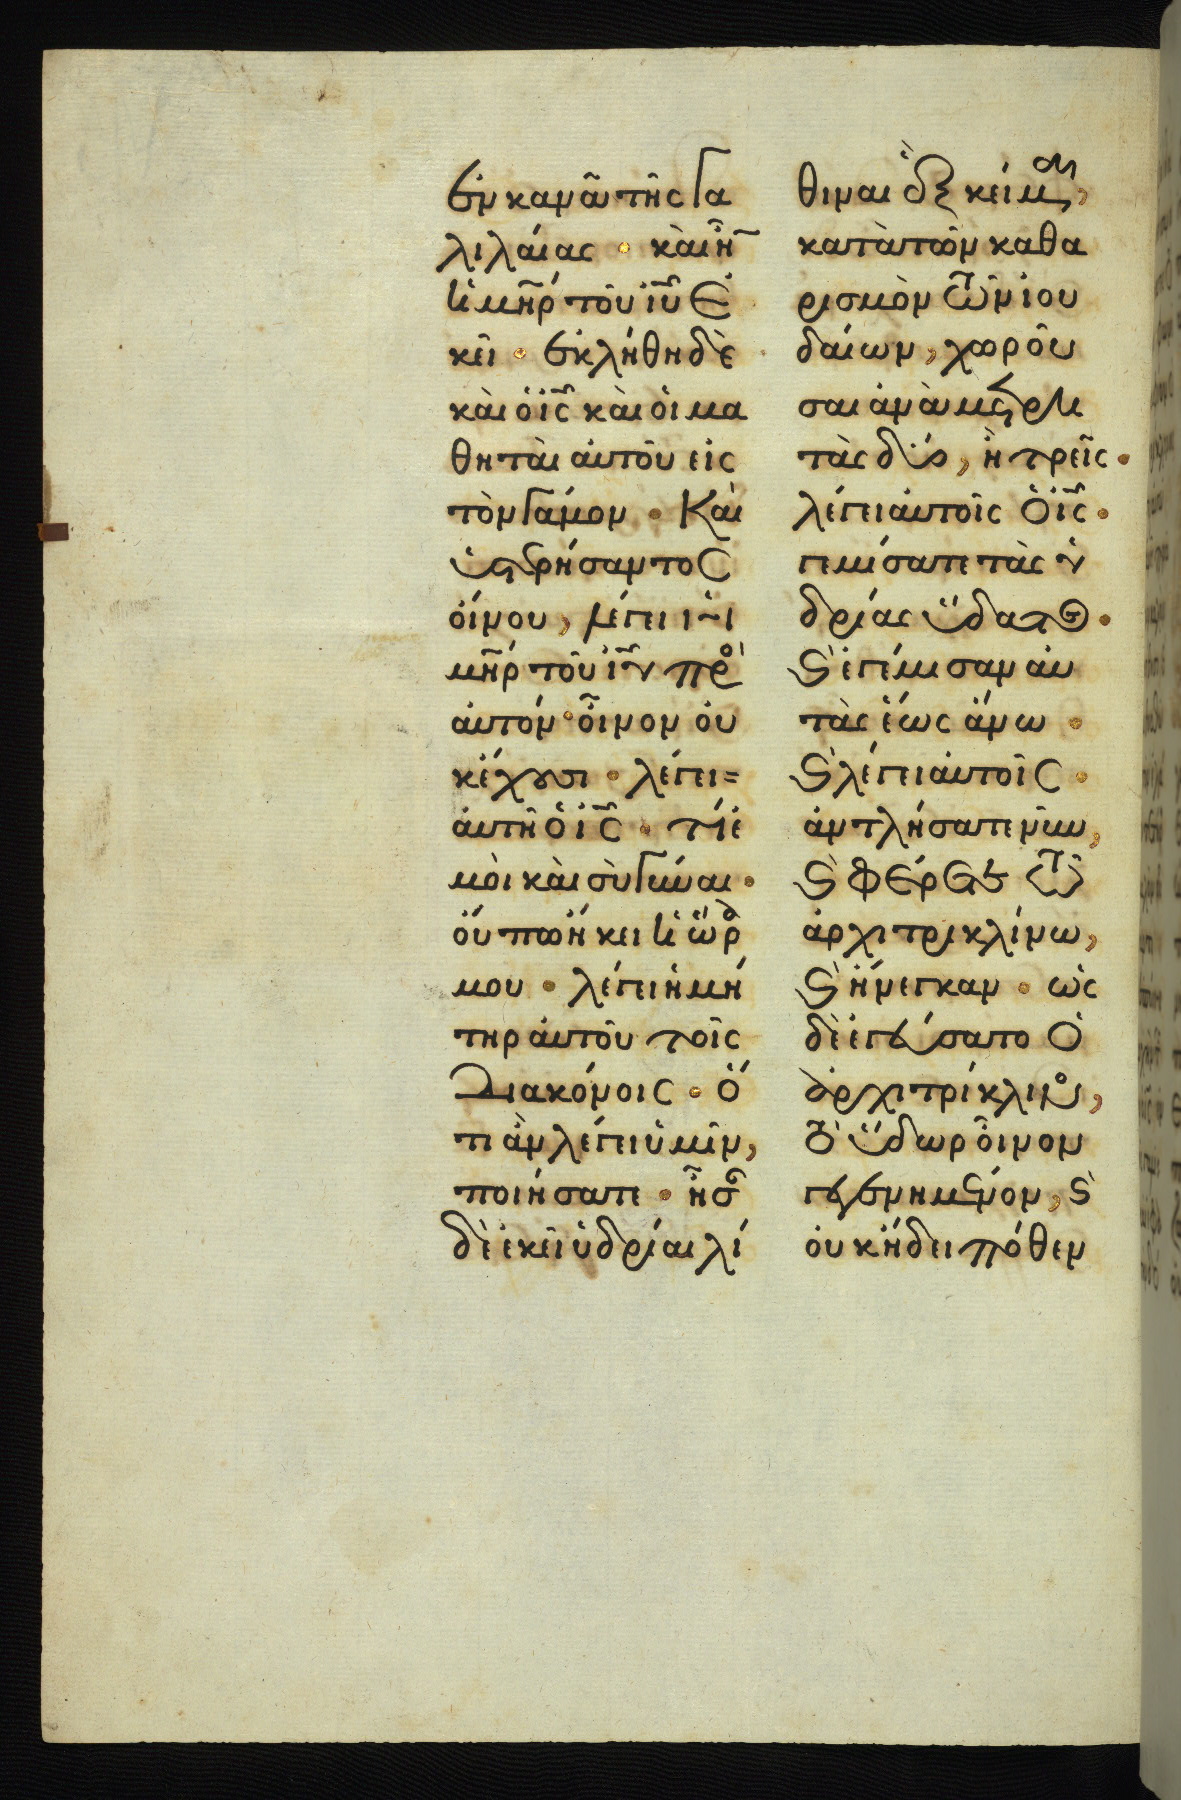 ἐν κανᾶ τῆς Γα
λιλαίας · καὶ ἦν
ἡ μῆρ τοῦ ἰῦ ἐ
κεῖ · ἐκλήθη δὲ
καὶ ὁ ἰς καὶ οἱ μα
θηταὶ αὐτοῦ εἰς
τὸν γάμον · Καὶ
ὑστερήσαντος
οἴνου, λέγει ἡ
μῆρ τοῦ ἰῦ πρὸ
αὐτόν · οἶνον οὐ
κ ἔχουσι · λέγει
αὐτῆ ὁ ἰς · τί ἐ
μοὶ καὶ σὺ γύναι ·
οὔπω ἥκει ἡ ὥρ
μου · λέγει ἡ μή
τηρ αὐτοῦ τοῖς
Διακόνοις · ὅ
τι ἂν λέγει ὑμῖν,
ποιήσατε · ἦσ
δὲ ἐκεῖ ὑδρίαι λί
θιναι ἓξ κείμεναι,
κατὰ τὸν καθα
ρισμὸν τῶν ἰου
δαίων, χωροῦ
σαι ἀνὰ μετρη
τὰς δύο, ἢ τρεῖς ·
λέγει αὐτοῖς ὁ ἰς ·
γεμίσατε τὰς ὑ
δρίας ὕδατος ·
καὶ ἐγέμισαν αὐ
τὰς ἕως ἄνω ·
καὶ λέγει αὐτοῖς ·
ἀντλήσατε νῦν,
καὶ φέρετε τῶ
ἀρχιτρικλίνω,
καὶ ἤνεγκαν · ὡς
δὲ ἐγεύσατο ὁ
ἀρχιτρίκλινος,
τὸ ὕδωρ οἶνον
γεγενημένον, καὶ
οὐκ ἤδει πόθεν